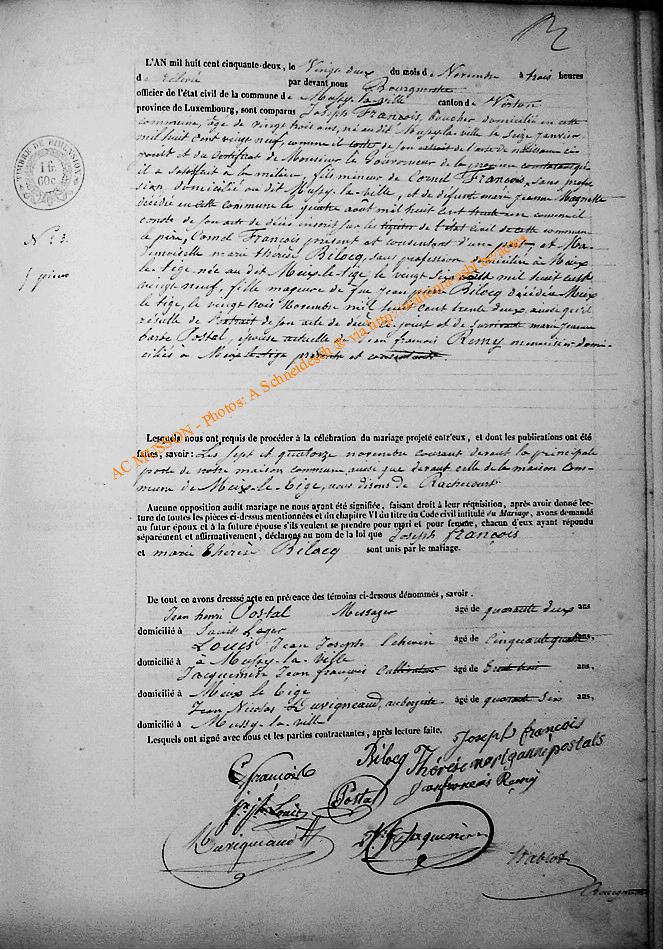 L'AN mil huit cent cinquante-deux, le Vingt deux du mois de Novembre à trois heures
de relevée par devant nous Bourgmestre
officier de l'état civil de la commune de Mussy-la-ville canton de Virton
province de Luxembourg, sont comparus Joseph François, boucher domicilié en cette
commune, âgé de vingt trois ans, né au dit Mussy-la-ville le seize janvier
mil huit cent vingt neuf, comme il de son de l'acte de naissance
et du certificat de Monsieur le Gouverneur de la province
il a satisfait à la milice, fils mineur de Cornel François, sans profes
sion, domicilié au dit Mussy-la-ville, et de défunte marie jeanne Magnette
décédée en cette commune le quatre août mil huit cent trente comme il
conste de son acte de décès inscrit sur les registres de l'état civil de cette commune
le père, Cornel François présent et consentant d'une part, et Ma
demoiselle marie thérèse Bilocq, sans profession domiciliée à Meix
le tige, née au dit Meix-le-tige, le vingt six août mil huit cent
vingt neuf, fille majeure de feu Jean Bilocq décédé à Meix
le tige, le vingt trois Novembre mil huit cent trente deux ainsi qu'il
résulte de l'extrait de son acte de décès et de marie jeanne
barbe Postal, épouse actuelle de Jean françois Remy menuisier domi-
ciliés à Meix-le-tige présents et consentants.
N° 23.
5 pièces
TIMBRE DE DIMENSION
1 fr.
60 c.
AC MUSSON - Photos: A Schneidesch & via http://
Lesquels nous ont requis de procéder à la célébration du mariage projeté entr'eux, et dont les publications ont été
faites, savoir: Les sept et quatorze novembre courant devant la principale
porte de notre maison commune, ainsi que devant celle de la maison Com-
mune de Meix-le-Tige, nous disons de Rachecourt
Aucune opposition audit mariage ne nous ayant été signifiée, faisant droit à leur réquisition, après avoir donné lec-
ture de toutes les pièces ci-dessus mentionnées et du chapitre VI du titre du Code civil intitulé du Mariage, avons demandé
au futur époux et à la future épouse s'ils veulent se prendre pour mari et pour femme, chacun d'eux ayant répondu
séparément et affirmativement, déclarons au nom de la loi que Joseph François
et marie thérèse Bilocq sont unis par le mariage.
De tout ce avons dresssé acte en présence des témoins ci-dessous dénommés, savoir.
Jean henri Postal Messager âgé de quarante deux ans
domicilié à Saint Leger
Louis Jean Joseph âgé de Cinquante quatre ans,
domicilié à Mussy-la-ville
Jacquemin Jean françois Cultivateur âgé de ans,
domicilié à Meix le tige
Jean Nicolas Duvigneaud, aubergiste âgé de quarante six ans,
domicilié à Mussy-la-ville
Lesquels ont signé avec nous et les parties contractantes, après lecture faite.
Joseph françois
Bilocq Thérèse postals
C françois Jean francois Remy
j. j. Louis Postal
Duvigneaud Jacquemin
Bourgmestre